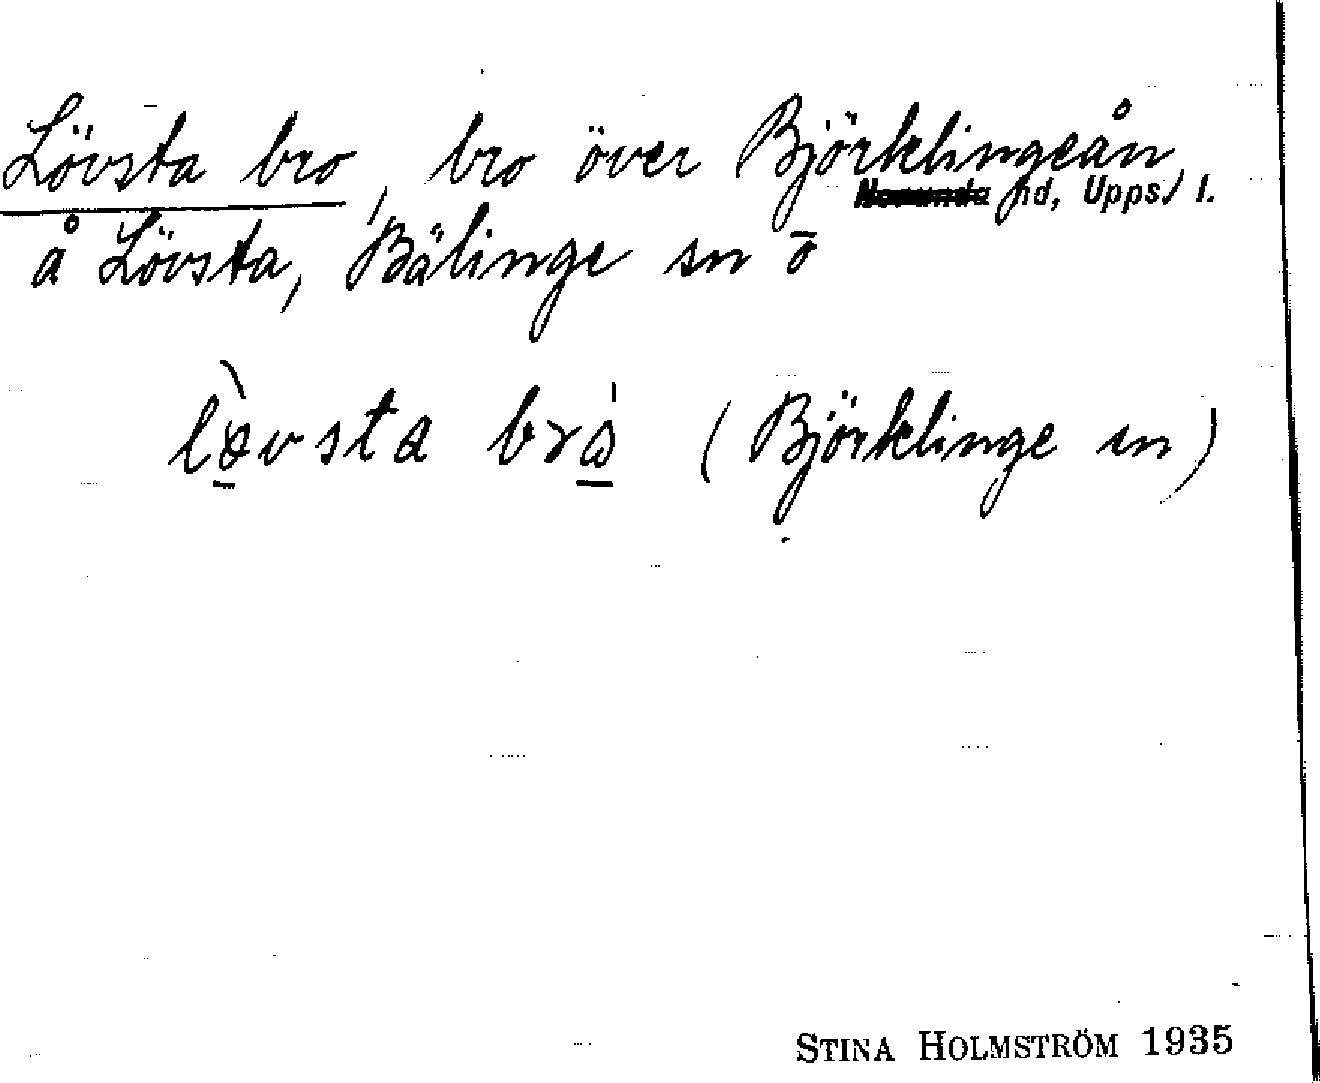 Lövsta bro, bro över Björklingeån
hd, Upps. l.
å Lövsta, Bälinge sn ō
(Björklinge sn)
STINA HOLMSTRÖM 1935